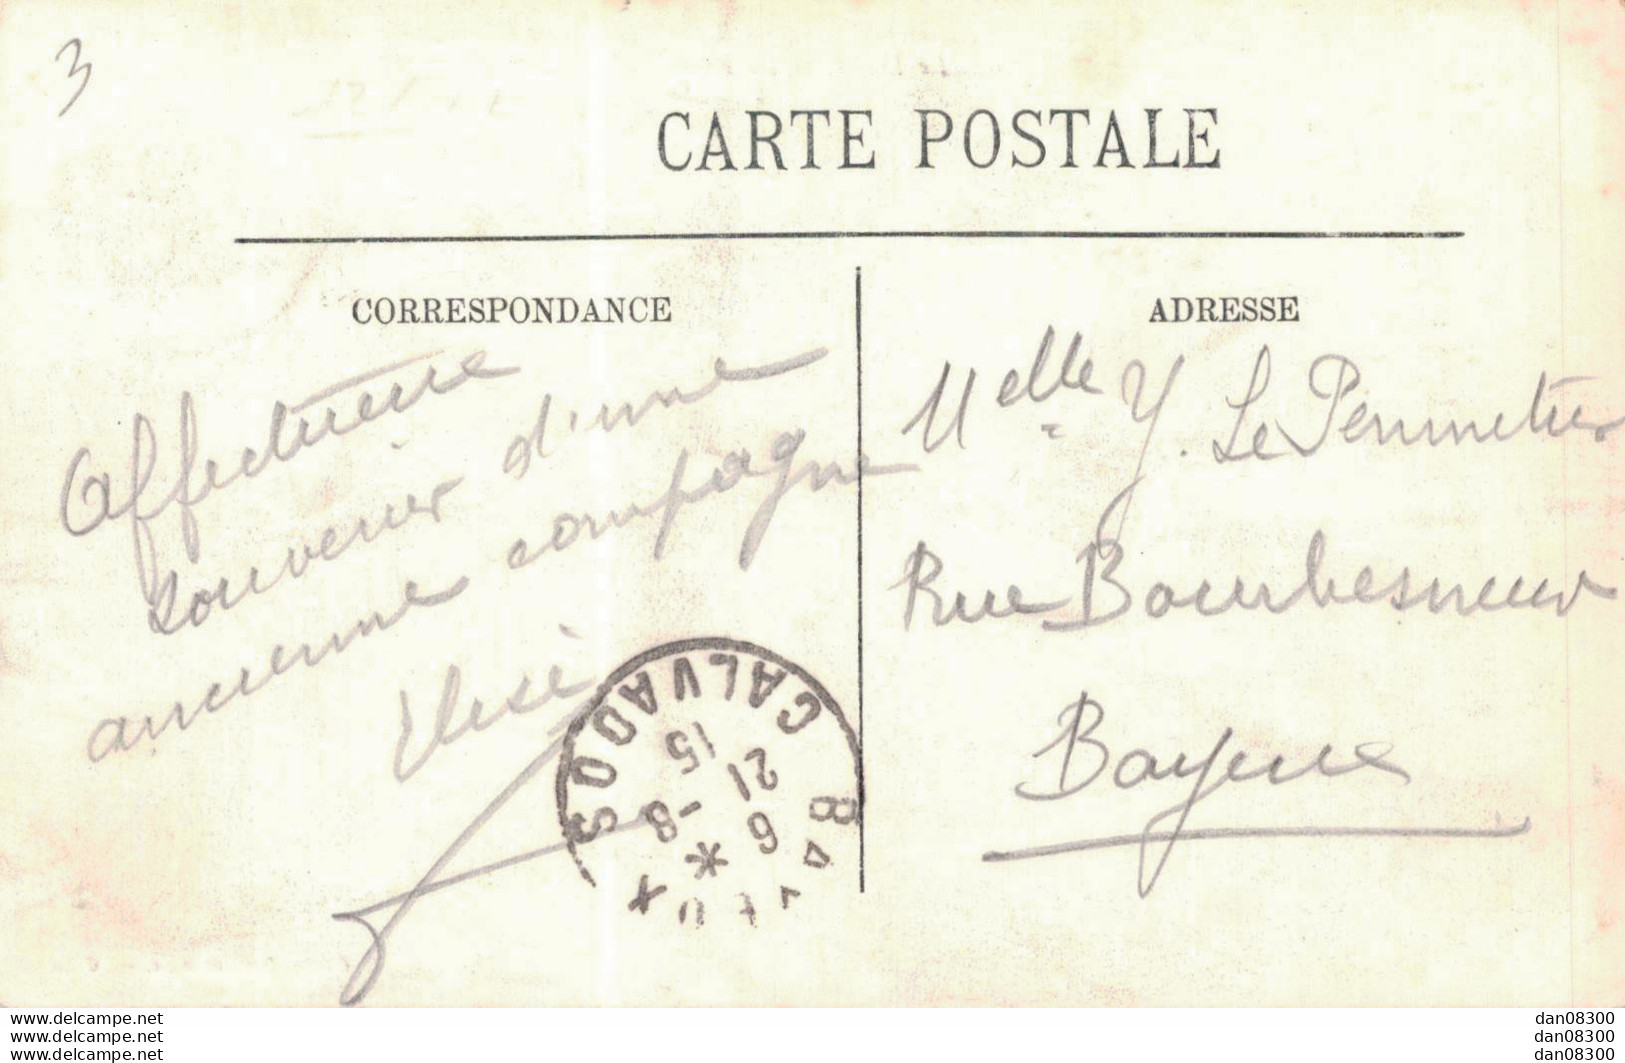 3
CARTE POSTALE
CORRESPONDANCE
ADRESSE
Affectueux
souvenir d'une
ancienne compagne
Melle Y. Le
Rue
Bayeux
BAYEUX
CALVADOS
15
21
6 -8
www.delcampe.net
www.delcampe.net
www.delcampe.net
dan08300
dan08300
dan08300